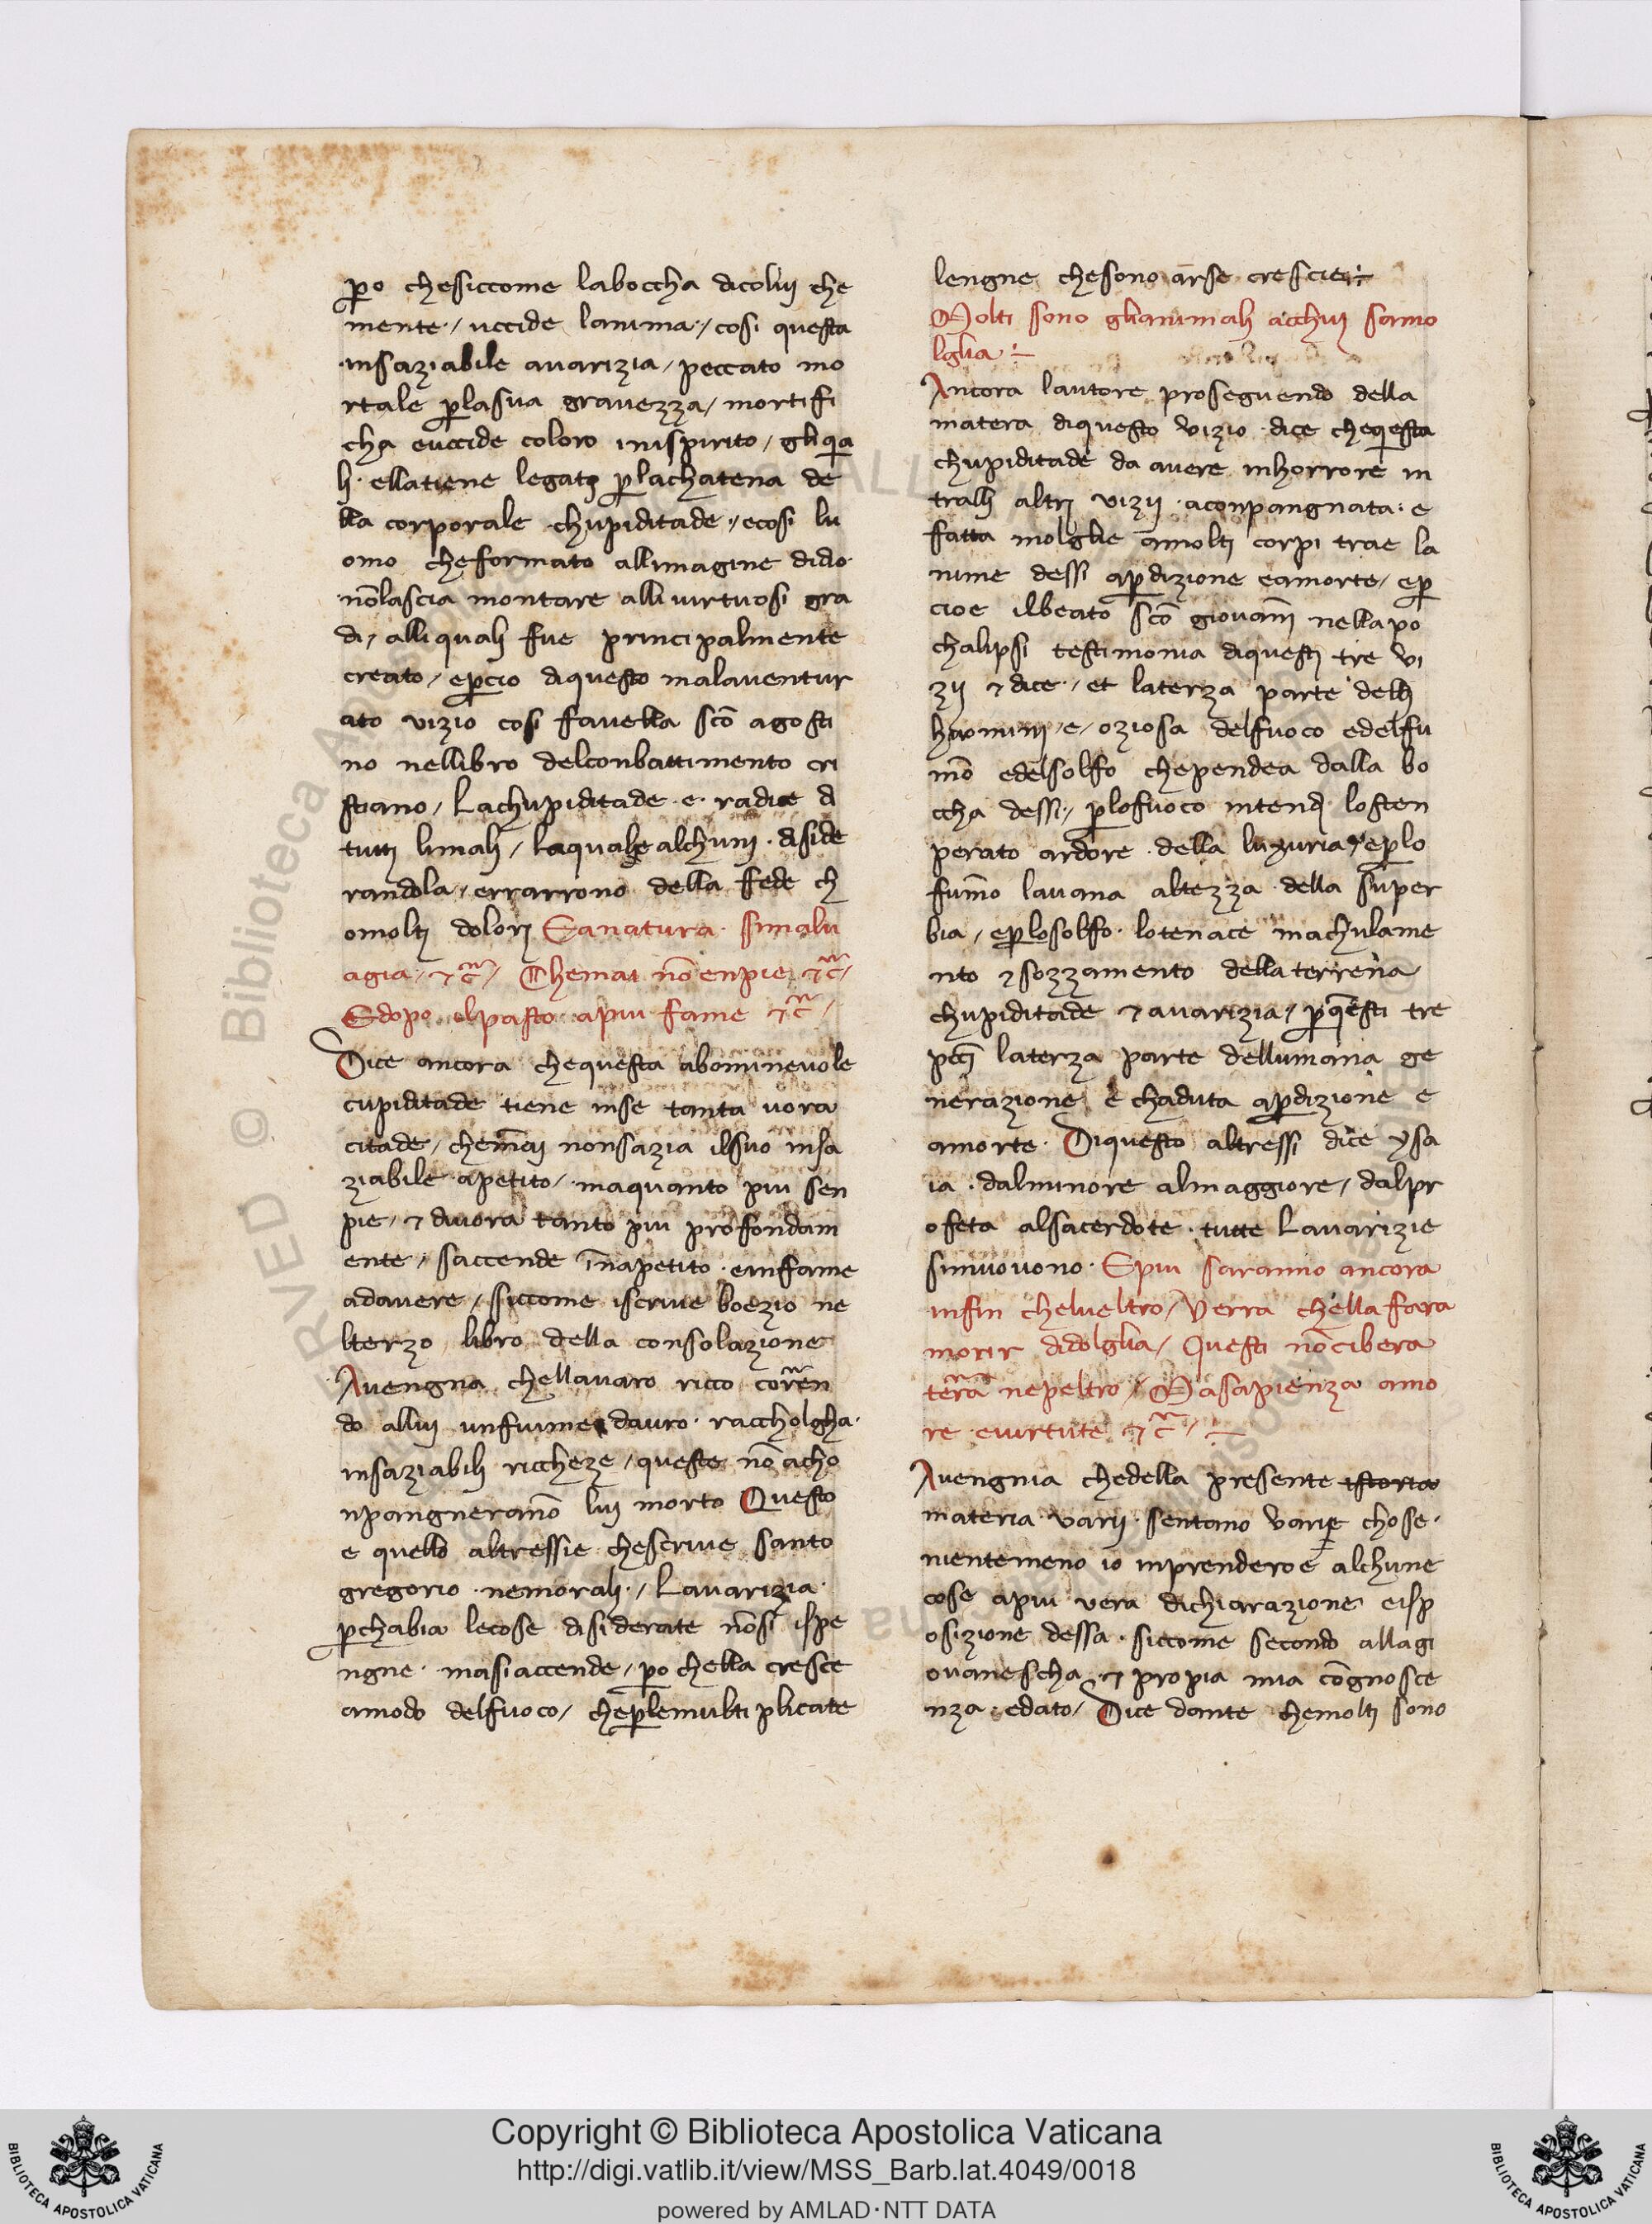 ꝑo chesiccome laboccha dicolui che
mente·/ uccide lanima·/ cosi questa
insaziabile auarizia / peccato mo
rtale ꝑlasua grauezza / mortifi
cha euccide coloro inispirito / gliqua
li· ellatiene legati ꝑlachatena de
lla corporale chupiditade·/ ecosi lu
omo cheformato allimagine didio
nōlascia montare alli uirtuosi gra
di / alli quali fue principalmente
creato / eꝑcio diquesto malauentur
ato vizio cosi fauella scō agosti
no nellibro delconbattimento cri
stiano / Lachupiditade· e· radice di
tutti limali / laquale alchuni · diside
randola / errarrono della fede ch
omolti dolori Eanatura· simalu
agia·/ ⁊c̃ / Chemai nō enpie ⁊c̃ /
Edopo elpasto apiu fame ⁊c̃ /
Dice ancora chequesta abominevole
cupiditade tiene inse tanta uora
citade / chemāi nonsazia ilsuo insa
ziabile apetito / maquanto piu sen
pie / ⁊ diuora tanto piu profondam
ente / saccende īnapetito · einfame
adauere / siccome iscriue boezio ne
lterzo libro della consolazione
Auengna chellauaro ricco corēn
do allui unfiume dauro · raccholgha·
insaziabili riccheze / queste nō acho
npangneranō lui morto Questo
e quello altressie chescriue santo
gregorio · nemorali·/ Lauarizia·
ꝑchabia lecose disiderate nōsi ispe
ngne · masiaccende / ꝑo chella cresce
amodo delfuoco / cheꝑlemulti plicate
lengne chesono arse crescie ÷
Molti sono glianimali acchui samo
lglia ÷
Ancora lautore proseguendo della
matera diquesto vizio · dice chequesta
chupiditade da auere inhorrore in
tralli altri vizii · aconpangnata· e
fatta molglie amolti corpi trae la
nime dessi aꝑdizione eamorte / eꝑ
cioe ilbeato scō giovāni nellapo
chalipsi testimonia diquesti tre vi
zii ⁊ dice·/ et laterza parte delli
huomini / e / oziosa delfuoco edelfu
mō edelsolfo chependea dalla bo
ccha dessi·/ ꝑlofuoco intendi losten
perato ardore · della luxuria / eꝑlo
fumo lauana altezza della super
bia / eꝑlosolfo · lotenace machulame
nto ⁊ sozzamento della terrena
chupiditade ⁊ auarizia / ꝑquesti tre
pcti laterza parte dellumana ge
nerazione e chaduta aꝑdizione e
amorte · Diquesto altressi dice ysa
ia · dalminore almaggiore / dalpr
ofeta alsacerdote · tutte Lauarizie
simuouono · Epiu saranno ancora
infin cheluueltro / Verra chella fara
morir didolglia / Questi nōcibera
terrā nepeltro / Masapienza amo
re euirtute ⁊c̃ / ÷
Auengnia chedella presente istoria
materia varii · sentano varie chose·
nientemeno io inprenderoe alchune
cose apiu vera dichiarazione eisp
osizione dessa · siccome secondo allagi
ouanescha ⁊ propia mia cōgnosce
nza · edato / Dice dante chemolti sono
Copyright © Biblioteca Apostolica Vaticana
http://digi.vatlib.it/view/MSS_Barb.lat.4049/0018
powered by AMLAD·NTT DATA
BIBLIOTECA APOSTOLICA VATICANA
BIBLIOTECA APOSTOLICA VATICANA